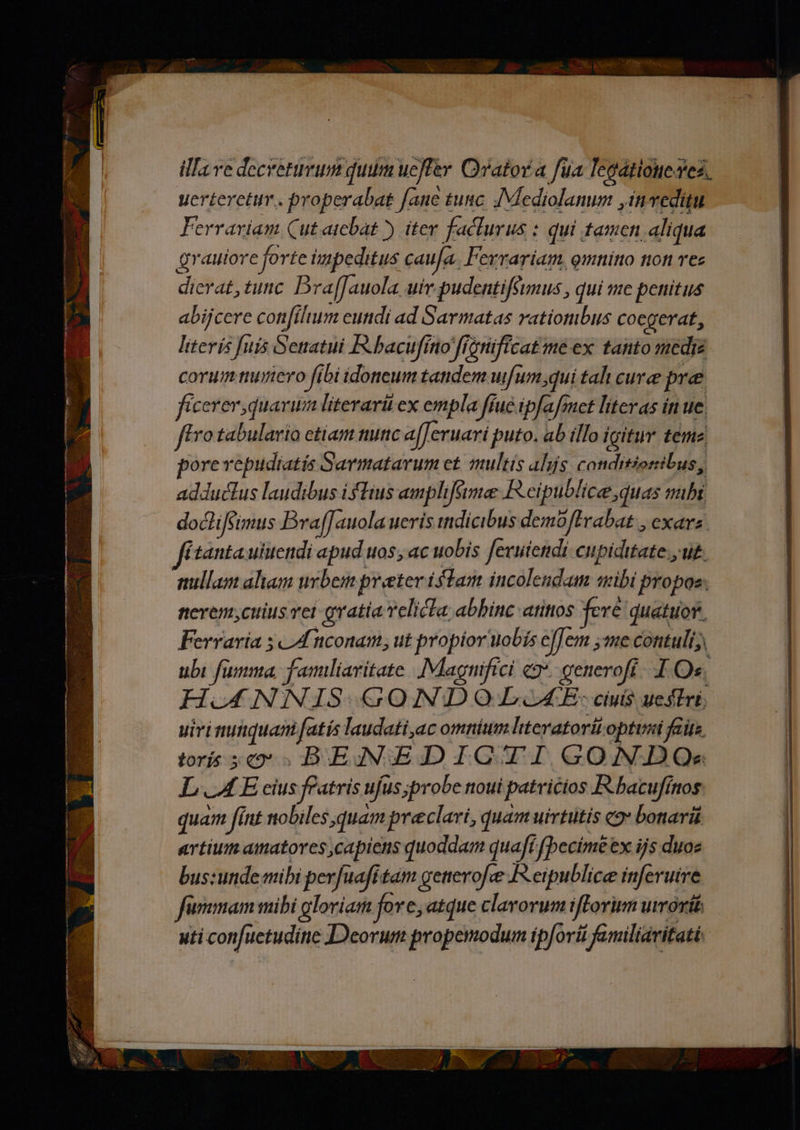 illa re decreturum quùm uester Orator a sua legatione re-
uerteretur. properabat sane tunc Mediolanum, in reditu
Ferrariam (ut aiebat) iter facturus: qui tamen aliqua
grauiore forte impeditus causa Ferrariam omnino non re-
dierat, tunc Brassauola uir pudentissimus, qui me penitus
abijcere consilium eundi ad Sarmatas rationibus coegerat,
literis suis Senatui Rhacusino significat me ex tanto medi-
corum numero sibi idoneum tandem uisum, qui tali curæ præ
ficerer, quarum literarũ ex empla siue ipsasmet literas in ue
stro tabulario etiam nunc asseruari puto. ab illo igitur tem-
pore repudiatis Sarmatarum et multis alijs conditionibus,
adductus laudibus istius amplissimæ Reipublicæ, quas mihi
doctissimus Brassauola ueris indicibus demõstrabat, exar-
si tanta uiuendi apud uos, ac uobis seruiendi cupiditate, ut
nullam aliam urbem præter istam incolendam mihi propo-
nerem, cuius rei gratia relicta abhinc annos ferè quatuor
Ferraria; Anconam, ut propior uobis essem, me contuli,
ubi summa familiaritate Magnifici & generosi IO-
HANNIS GONDOLAE ciuis uestri,
uiri nunquam satis laudati, ac omnium literatorũ optimi fau-
toris; & BENEDICTI GONDO-
LAE eius fratris usus, probe noui patricios Rhacusinos
quàm sint nobiles, quàm præclari, quàm uirtutis & bonarũ
artium amatores, capiens quoddam quasi specimẽ ex ijs duo-
bus: unde mihi persuasi tam generosæ Reipublicæ inseruire
summam mihi gloriam fore, atque clarorum istorum uirorũ
uti consuetudine Deorum propemodum ipsorũ familiaritati